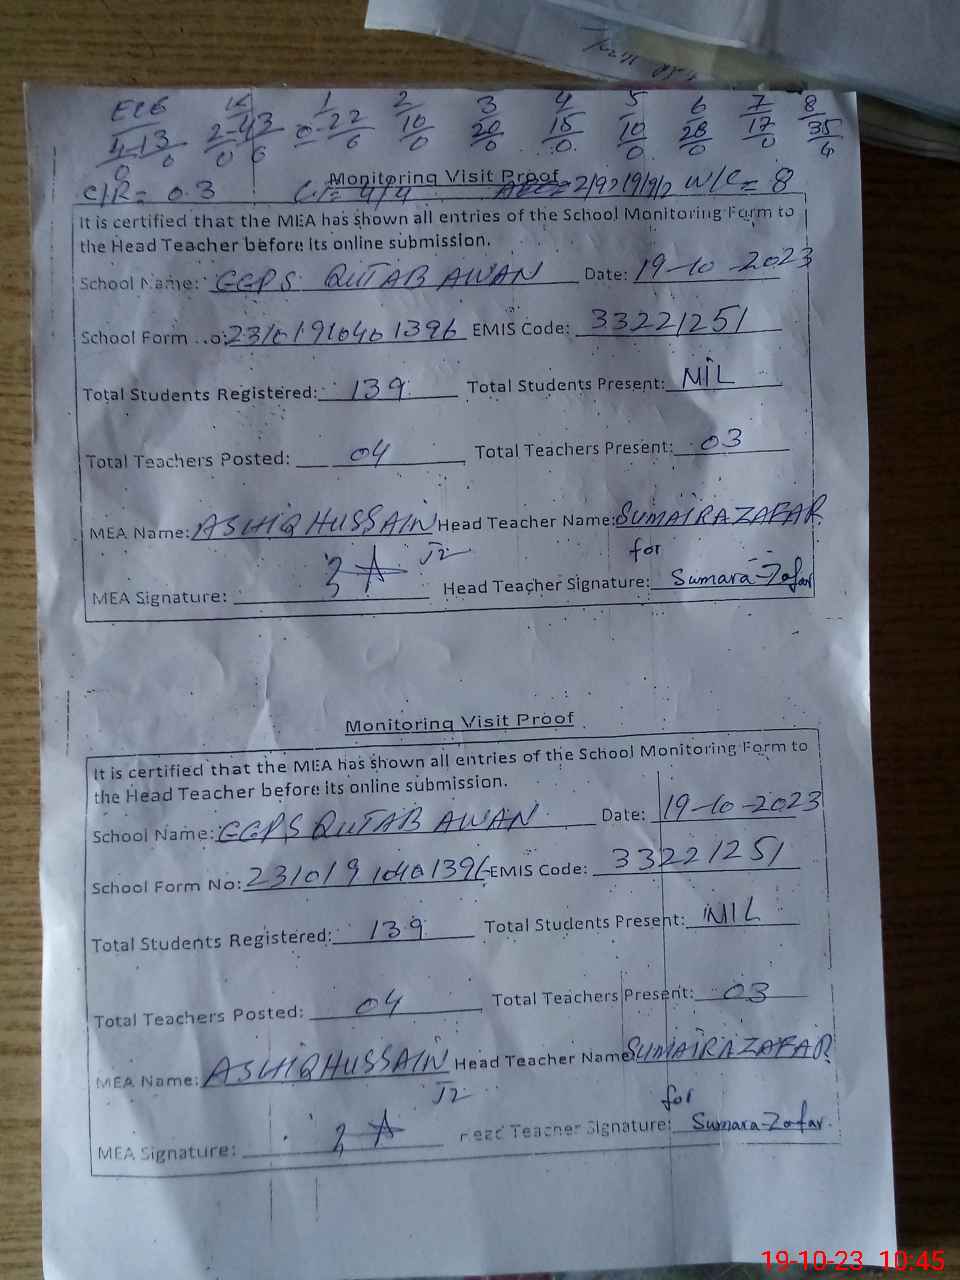 ECE 1 2 3 4 5 6 7 8
4-13 2-43 0-22 10 20 15 10 28 17 35
0 0 6 6 0 0 0 0 0 0 4
C/R = 03 C/= 4/4 2/92/9/9/2 W/C = 8
Monitoring Visit Proof
It is certified that the MEA has shown all entries of the School Monitoring Form to
the Head Teacher before its online submission.
School Name: GGPS QUTAB AWAN Date: 19-10-2023
School Form No: 23101910401396 EMIS Code: 33221251
Total Students Registered: 139 Total Students Present: NIL
Total Teachers Posted: 04 Total Teachers Present: 03
MEA Name: ASHIQ HUSSAIN Head Teacher Name: SUMAIRA ZAFAR
J2 for
MEA Signature: Head Teacher Signature: Sumara Zafar
Monitoring Visit Proof
It is certified that the MEA has shown all entries of the School Monitoring Form to
the Head Teacher before its online submission.
School Name: GGPS QUTAB AWAN Date: 19-10-2023
School Form No: 23101910401396 EMIS Code: 33221251
Total Students Registered: 139 Total Students Present: NIL
Total Teachers Posted: 04 Total Teachers Present: 03
MEA Name: ASHIQ HUSSAIN Head Teacher Name: SUMAIRA ZAFAR
J2 for
MEA Signature: Head Teacher Signature: Sumara Zafar.
19-10-23 10:45